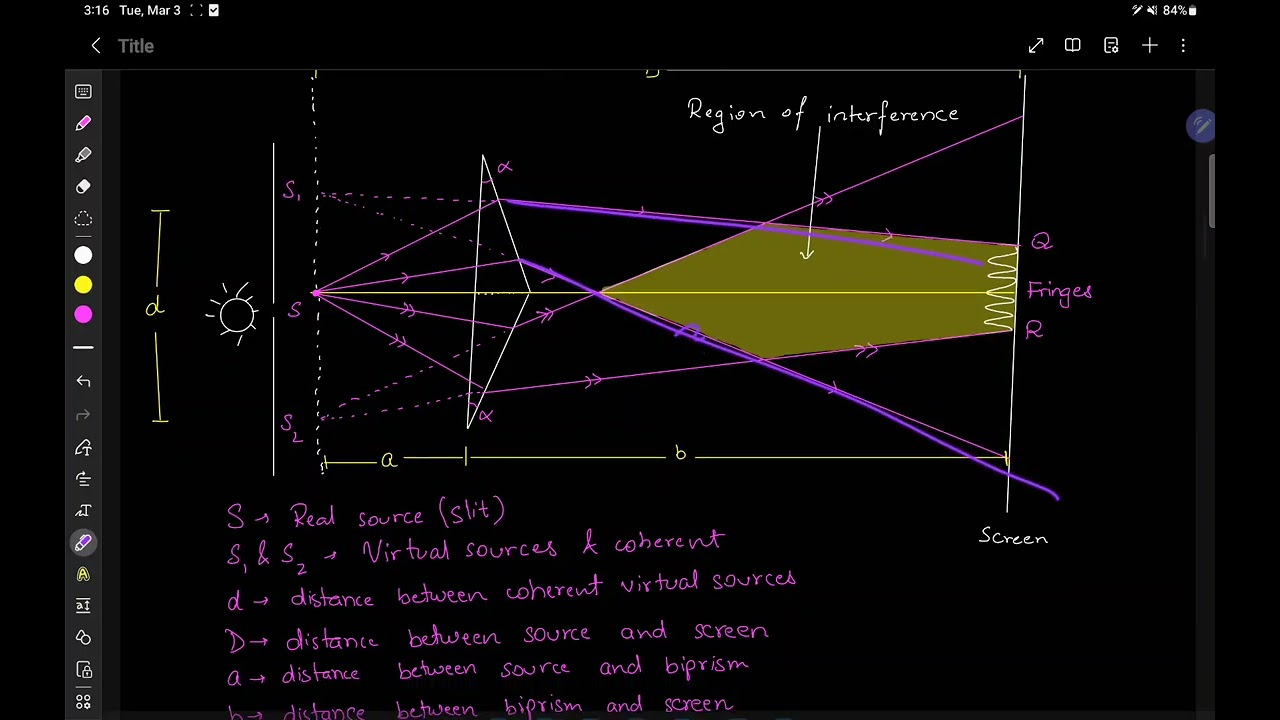 3:16 Tue, Mar 3 84%
Title
Region of interference
α
S1
Q
d
S
Fringes
R
S2
α
a b
S → Real source (slit)
Screen
S1 & S2 → Virtual sources & coherent
d → distance between coherent virtual sources
D → distance between source and screen
a → distance between source and biprism
b → distance between biprism and screen